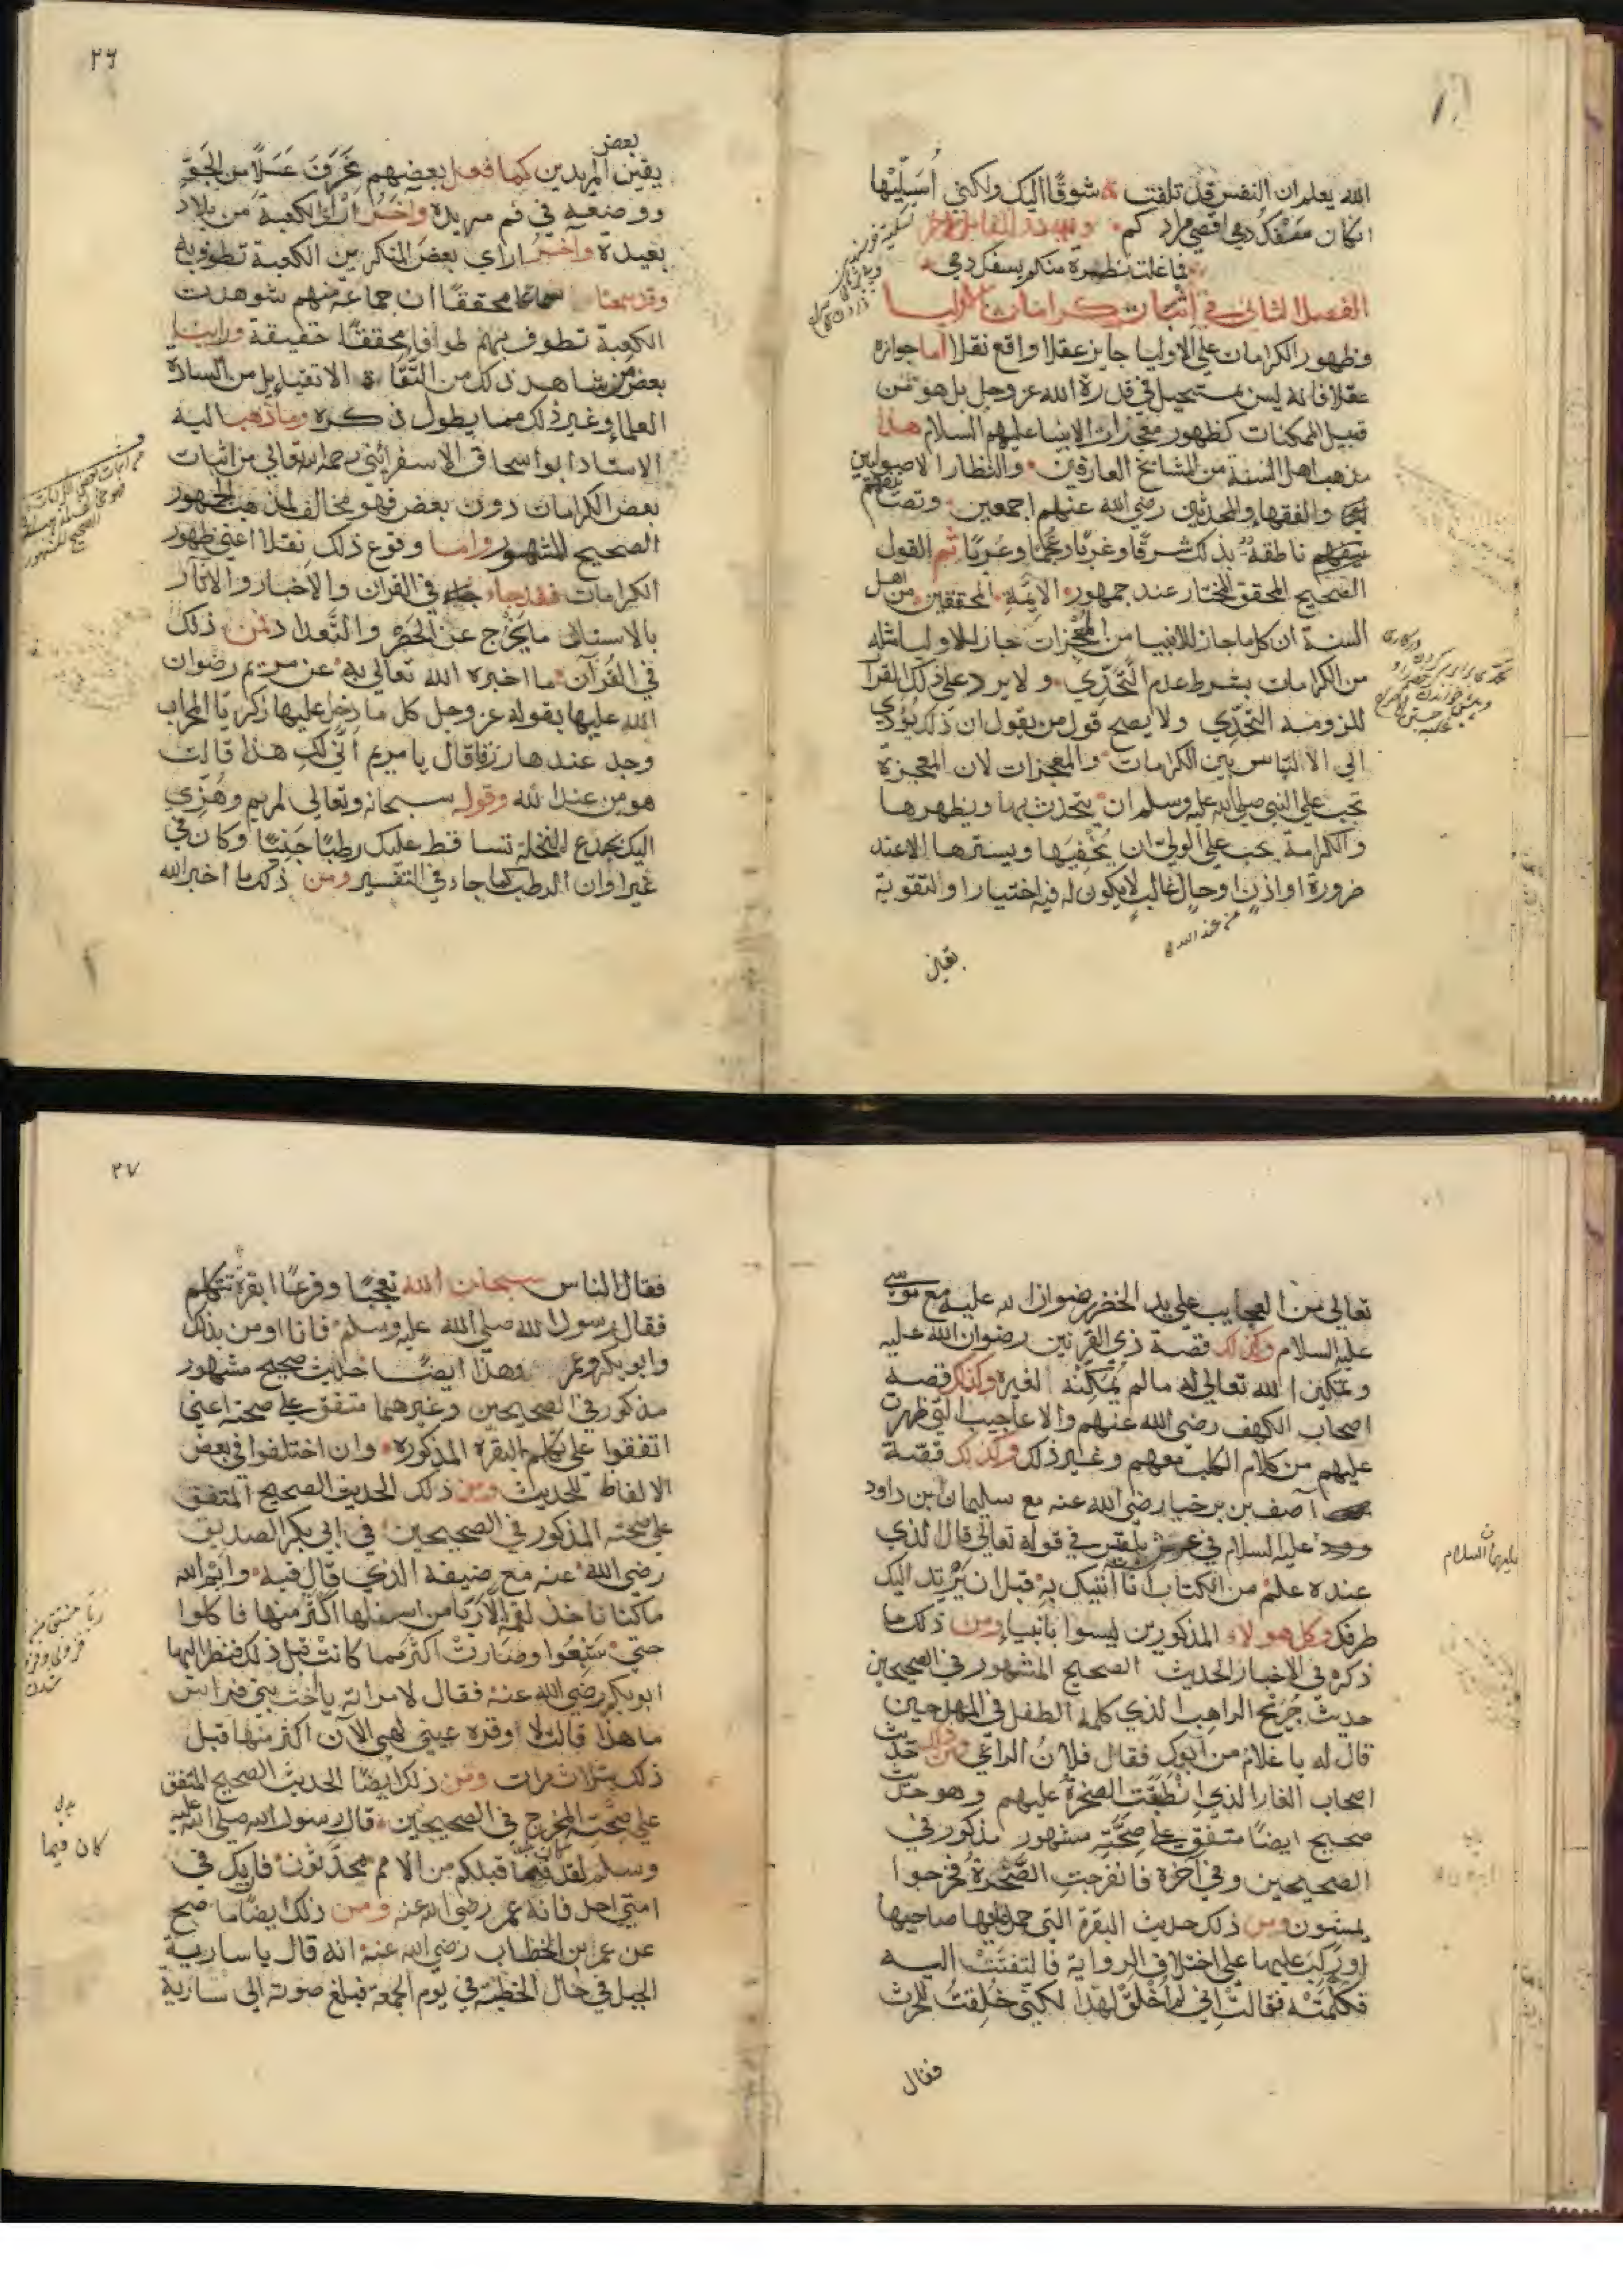 الله يعلم ان النفس قد تلفت شوقًا اليك ولكني أُسَلّيْها
ان كان سَفْكُ دمي اقصي مرادكم
فما غلت نظرة منكم بسفك دمي
الفصل الثاني في اثبات كرامات الاوليا
وظهور الكرامات علي الاوليا جايز عقلا واقع نقلا اما جوازه
عقلا فانه ليس بمستحيل في قدرة الله عز وجل بل هو من
قبيل الممكنات كظهور معجزات الانبيا عليهم السلام هذا
مذهب اهل السنة من المشايخ العارفين والنظار الاصوليين
والفقهاء والمحدثين رضي الله عنهم اجمعين وتصانيفهم
ناطقة بذلك شرقًا وغربًا وعجمًا وعربًا ثم القول
الصحيح المحقق المختار عند جمهور الايمة المحققين من اهل
السنة ان كل ما جاز للانبيا من المعجزات جاز للاوليا مثله
من الكرامات بشرط عدم التَّحَدِّي ولا يرد علي ذلك القران
للزومه التحدّي ولا يصح قول من يقول ان ذلك يُؤدي
الي الالتباس بين الكرامات والمعجزات لان المعجزة
تجب علي النبي صلي الله عليه وسلم ان يتحدث بها ويظهرها
والكرامة يجب علي الولي ان يُخْفِيَها ويسترها الا عند
ضرورة او اذن او حال غالب لا يكون له فيه اختيار او لتقوية
يقين
٢٦
يقين بعض المريدين كما فعل بعضهم غَرَفَ عَسَلًا من الجَوّ
ووضعه في فم مريده واخر اراي الكعبة من بلاد
بعيدة واخر اراي بعض المنكرين الكعبة تطوف به
وقد سمعنا سماعا محققًا ان جماعة منهم شوهدت
الكعبة تطوف بهم طوافا محققًا حقيقة وراينا
بعض من شاهد ذلك من الثقاة الاتقيا بل من السادة
العلما وغير ذلك مما يطول ذكره وما ذهب اليه
الاستاد ابو اسحاق الاسفرائني رحمه الله تعالي من اثبات
بعض الكرامات دون بعض فهو مخالف لمذهب الجمهور
الصحيح المشهور واما وقوع ذلك نقلا اعني ظهور
الكرامات فقد جاء في القران والاخبار والاثار
بالاسناد ما يَخْرُج عن الحَصْر والتَّعداد فمن ذلك
في القُرآن ما اخبره الله تعالي به عن مريم رضوان
الله عليها بقوله عز وجل كل ما دخل عليها زكريّا المحراب
وجد عندها رزقا قال يا مريم أنَّي لكِ هذا قالت
هو من عند الله وقوله سبحانه وتعالي لمريم وهُزّي
اليك بجذع النخلة تساقط عليك رطبًا جَنِيًّا وكان في
غير اوان الرطب كما جاء في التفسير ومن ذلك ما اخبر الله
تعالي من العجايب علي يد الخضر رضوان الله عليه مع موسي
عليه السلام وكذلك قصّة ذي القرنين رضوان الله عليه
وتمكين الله تعالي له ما لم يُمَكِّنْه لغيره وكذلك قصة
اصحاب الكهف رضي الله عنهم والاعاجيب التي ظهرت
عليهم من كلام الكلب معهم وغير ذلك وكذلك قصّة
آصف بن برخيا رضي الله عنه مع سليمان بن داود
عليه السلام في عرش بلقيس في قوله تعالي قال الذي
عنده علم من الكتاب انا آتيك به قبل ان يَرْتد اليك
طرفك وكل هولاء المذكورين ليسوا بانبياء ومن ذلك ما
ذكره في الاخبار الحديث الصحيح المشهور في الصحيحين
حديث جُرَيْج الراهب الذي كلمه الطفل في المهد حين
قال له يا غلام من ابوك فقال فلانُ الراعي ومن ذلك حديث
اصحاب الغار الذي انْطَبَقَت الصخرة عليهم وهو حديث
صحيح ايضًا متفق علي صِحَّتِه مشهور مذكور في
الصحيحين وفي آخره فانفرجت الصَّخْرة فخرجوا
يمشون ومن ذلك حديث البقرة التي حمل عليها صاحبها
او رَكِبَ عليها علي اختلاف الرواية فالتفتَتْ اليه
فكلَّمَتْه فقالتْ اني لم اُخْلَقْ لهذا لكنّي خُلِقتُ للحرث
فقال
عليهما السلام
٢٧
فقال الناس سبحان الله تعجبًا وفزعًا ابقرة تتكلم
فقال رسول الله صلي الله عليه وسلم فانا اومن بذلك
وابو بكر وعمر وهذا ايضًا حديث صحيح مشهور
مذكور في الصحيحين وغيرهما متفق علي صحته اعني
اتفقوا علي تكلم البقرة المذكوره وان اختلفوا في بعض
الالفاظ للحديث ومن ذلك الحديث الصحيح المتفق
علي صحته المذكور في الصحيحين في ابي بكر الصديق
رضي الله عنه مع ضيفه الذي قال فيه وايم الله
ما كنّا ناخذ لقمة الا رَبَا من اسفلها اكثر منها فاكلوا
حتي شَبِعُوا وصَارتْ اكثر مما كانتْ قبل ذلك فنظر اليها
ابو بكر رضي الله عنه فقال لامراته يا اخت بني فراس
ما هذا قالت لا وقرة عيني لهي الآن اكثر منها قبل
ذلك بثلاث مرات ومن ذلك ايضًا الحديث الصحيح المتفق
علي صحّته المخرج في الصحيحين قال رسول الله صلي الله عليه
وسلم لقد كان فيما قبلكم من الامم محدَّثون فان يك في
امتي احد فانه عمر رضي الله عنه ومن ذلك ايضًا ما صح
عن عمر ابن الخطاب رضي الله عنه انه قال يا سارية
الجبل في حال الخطبة في يوم الجمعة فبلغ صوته الي سارية
كان فيما